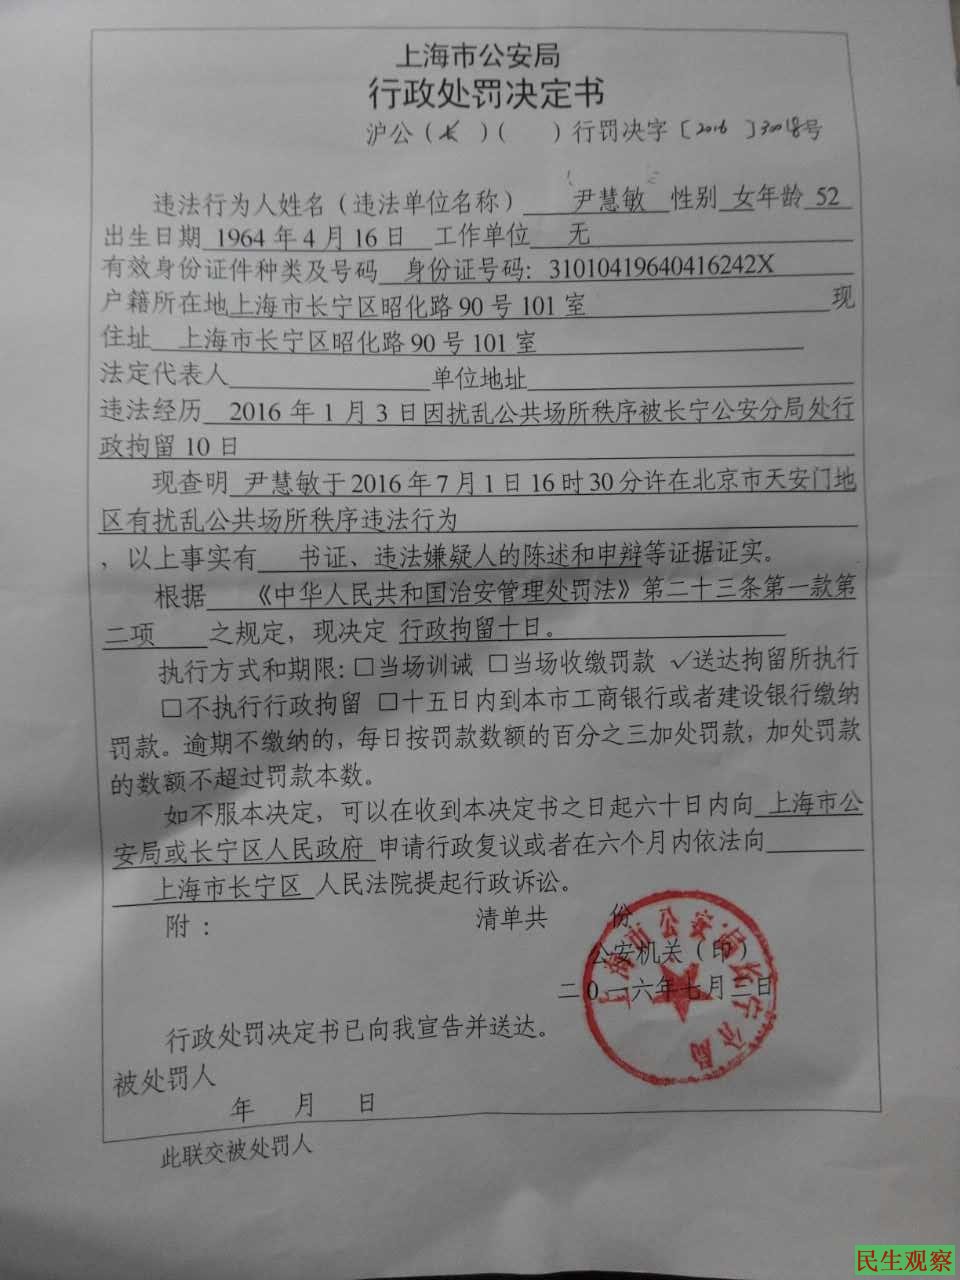 上海市公安局
行政处罚决定书
沪公（长）（ ）行罚决字〔2016〕30018号
违法行为人姓名（违法单位名称） 尹慧敏 性别 女年龄 52
出生日期 1964年4月16日 工作单位 无
有效身份证件种类及号码 身份证号码：31010419640416242X
户籍所在地上海市长宁区昭化路90号101室 现
住址 上海市长宁区昭化路90号101室
法定代表人 单位地址
违法经历 2016年1月3日因扰乱公共场所秩序被长宁公安分局处行
政拘留10日
现查明 尹慧敏于2016年7月1日16时30分许在北京市天安门地
区有扰乱公共场所秩序违法行为
，以上事实有 书证、违法嫌疑人的陈述和申辩等证据证实。
根据 《中华人民共和国治安管理处罚法》第二十三条第一款第
二项 之规定，现决定 行政拘留十日。
执行方式和期限：□当场训诫 □当场收缴罚款 ✓送达拘留所执行
□不执行行政拘留 □十五日内到本市工商银行或者建设银行缴纳
罚款。逾期不缴纳的，每日按罚款数额的百分之三加处罚款，加处罚款
的数额不超过罚款本数。
如不服本决定，可以在收到本决定书之日起六十日内向 上海市公
安局或长宁区人民政府 申请行政复议或者在六个月内依法向
上海市长宁区 人民法院提起行政诉讼。
附： 清单共 份
公安机关（印）
二0一六年七月三日
上海市公安局长宁分局
行政处罚决定书已向我宣告并送达。
被处罚人
年 月 日
此联交被处罚人
民生观察